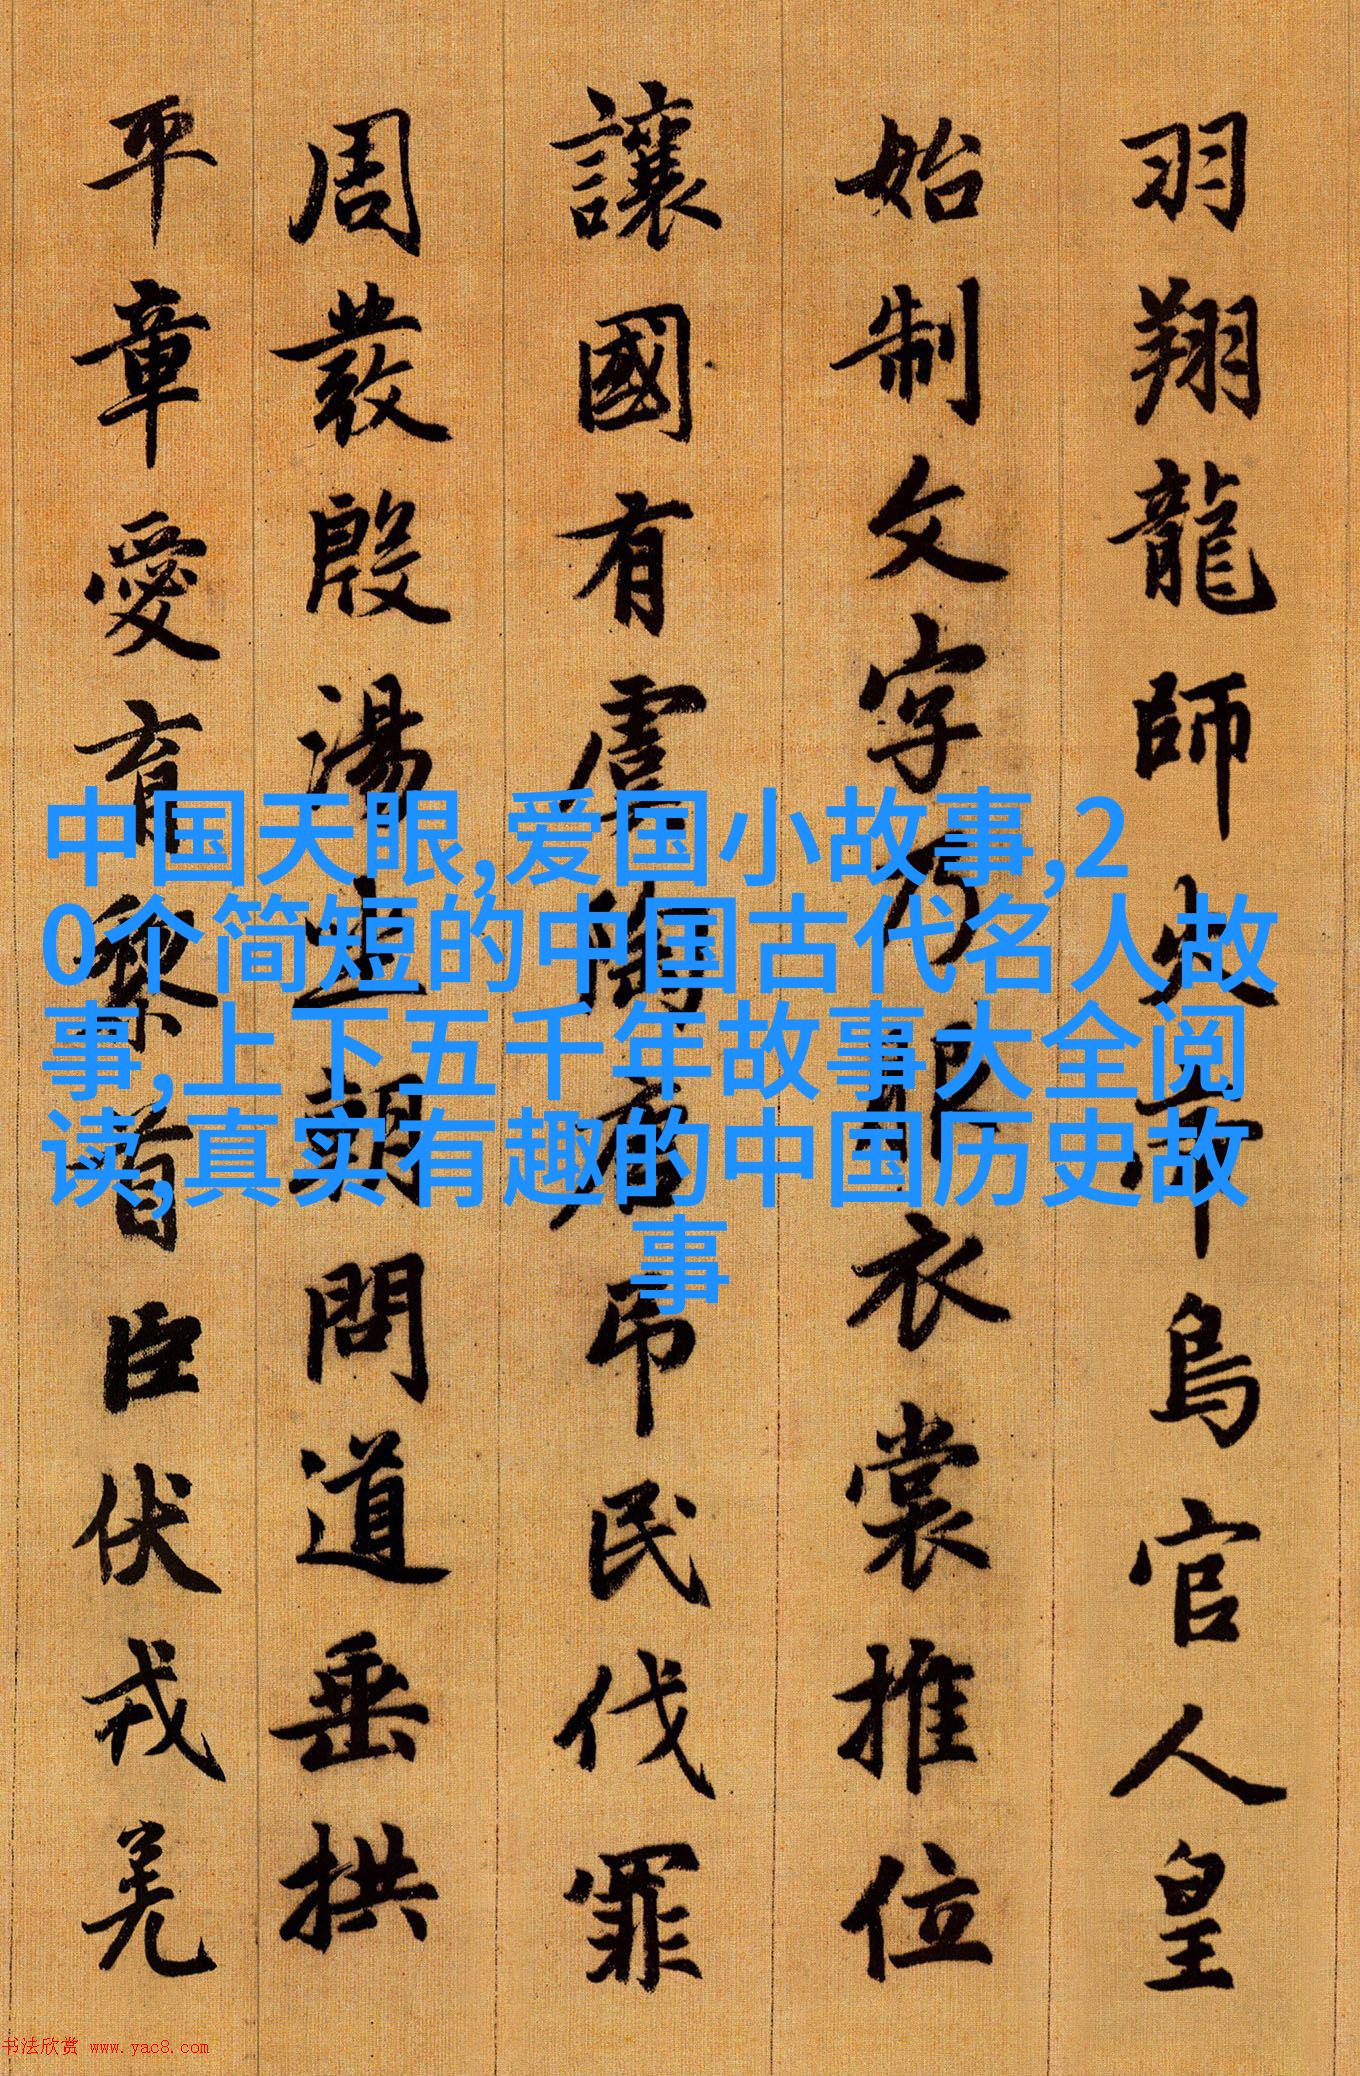 羽翔龍師火帝鳥官人皇
始制文字乃服衣裳推位
讓國有虞陶唐吊民伐罪
周發殷湯坐朝問道垂拱
平章愛育黎首臣伏戎羌
中国天眼,爱国小故事,2
0个简短的中国古代名人故
事,上下五千年故事大全阅
读,真实有趣的中国历史故
事
书法欣赏 www.yac8.com